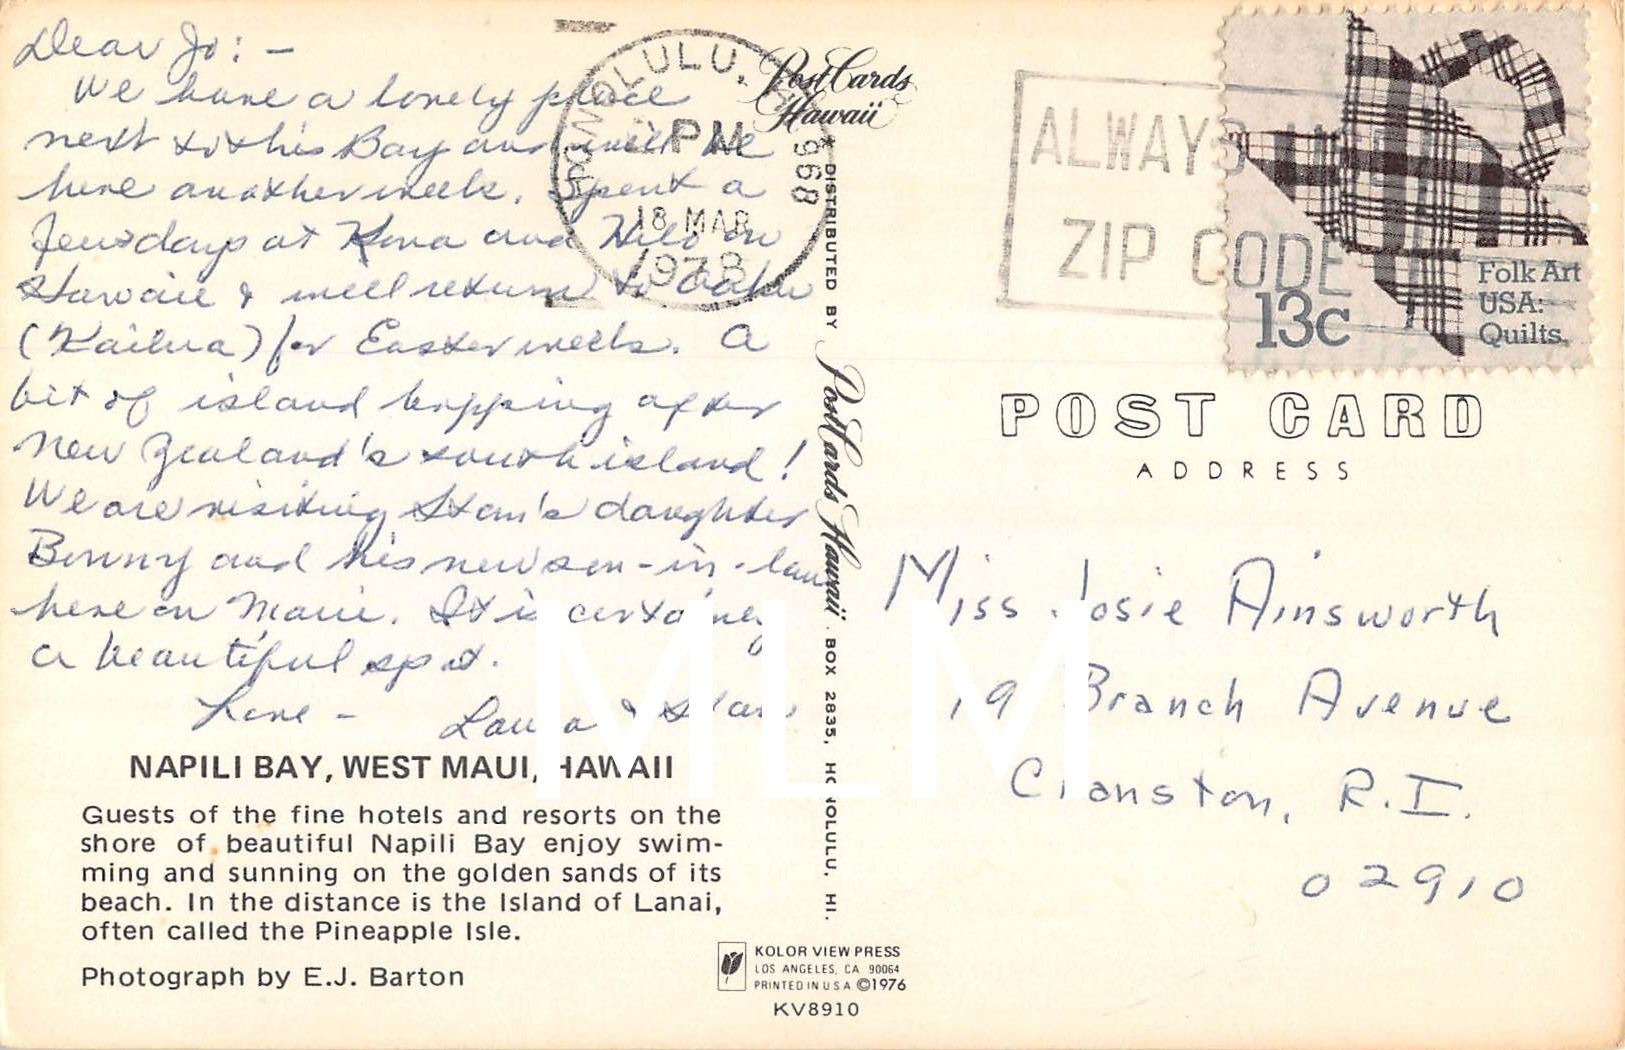 Dear Jo: -
We have a lovely place
next to this Bay and will be
here another week. Spent a
few days at Kona and Hilo on
Hawaii & will return to Oahu
(Kailua) for Easter week. A
bit of island hopping after
New Zealand's south island!
We are visiting Stan's daughter
Bunny and his new son-in-law
here on Maui. It is certainly
a beautiful spot.
Love - Laura & Stan
NAPILI BAY, WEST MAUI, HAWAII
Guests of the fine hotels and resorts on the
shore of beautiful Napili Bay enjoy swim-
ming and sunning on the golden sands of its
beach. In the distance is the Island of Lanai,
often called the Pineapple Isle.
Photograph by E.J. Barton
HONOLULU,
PM
18 MAR
1978
968
PostCards
Hawaii
DISTRIBUTED BY PostCards Hawaii. BOX 2835, HONOLULU, HI.
KOLOR VIEW PRESS
LOS ANGELES, CA 90064
PRINTED IN U S A ©1976
KV8910
ALWAYS
ZIP CODE
Folk Art
USA:
Quilts
13c
POST CARD
ADDRESS
Miss Josie Ainsworth
19 Branch Avenue
Cranston, R.I.
02910
MLM